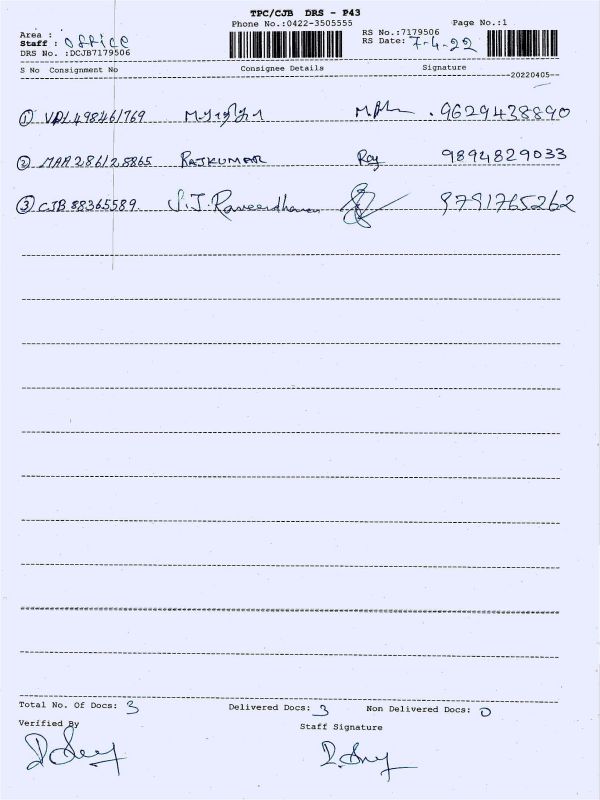 TPC/CJB DRS - P43
Phone No.:0422-3505555
Page No.:1
Area :
Staff : office
DRS No. :DCJB7179506
RS No.:7179506
RS Date: 7-4-22
S No Consignment No Consignee Details Signature
20220405
① VPL498461769 9629438890
② MAA286125865 RAJKUMAR Raj 9894829033
③ CJB88365589. S.J. 9791765262
Total No. Of Docs: 3 Delivered Docs: 3 Non Delivered Docs: 0
Verified By Staff Signature